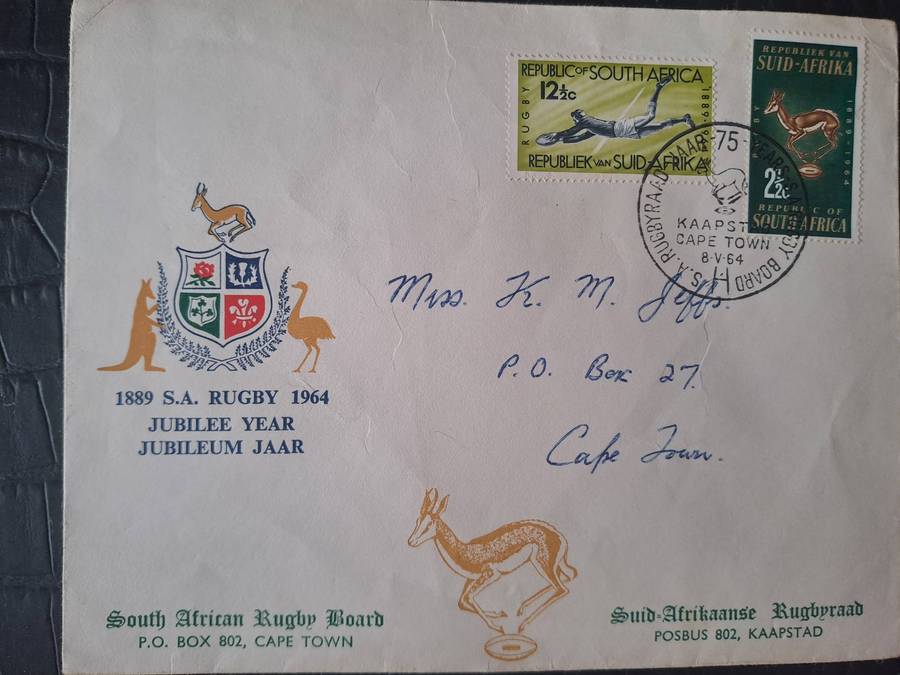 REPUBLIC OF SOUTH AFRICA
12½c
RUGBY
1889-1964
REPUBLIEK VAN SUID-AFRIKA
REPUBLIEK VAN
SUID-AFRIKA
RUGBY
1889-1964
2½c
REPUBLIC OF
SOUTH AFRICA
75
S.A. RUGBYRAAD
JAAR
YEARS S.A. RUGBY BOARD
KAAPSTAD
CAPE TOWN
8·V·64
Miss. K. M. Jeffs.
P.O. Box 27.
Cape Town.
1889 S.A. RUGBY 1964
JUBILEE YEAR
JUBILEUM JAAR
South African Rugby Board
P.O. BOX 802, CAPE TOWN
Suid-Afrikaanse Rugbyraad
POSBUS 802, KAAPSTAD